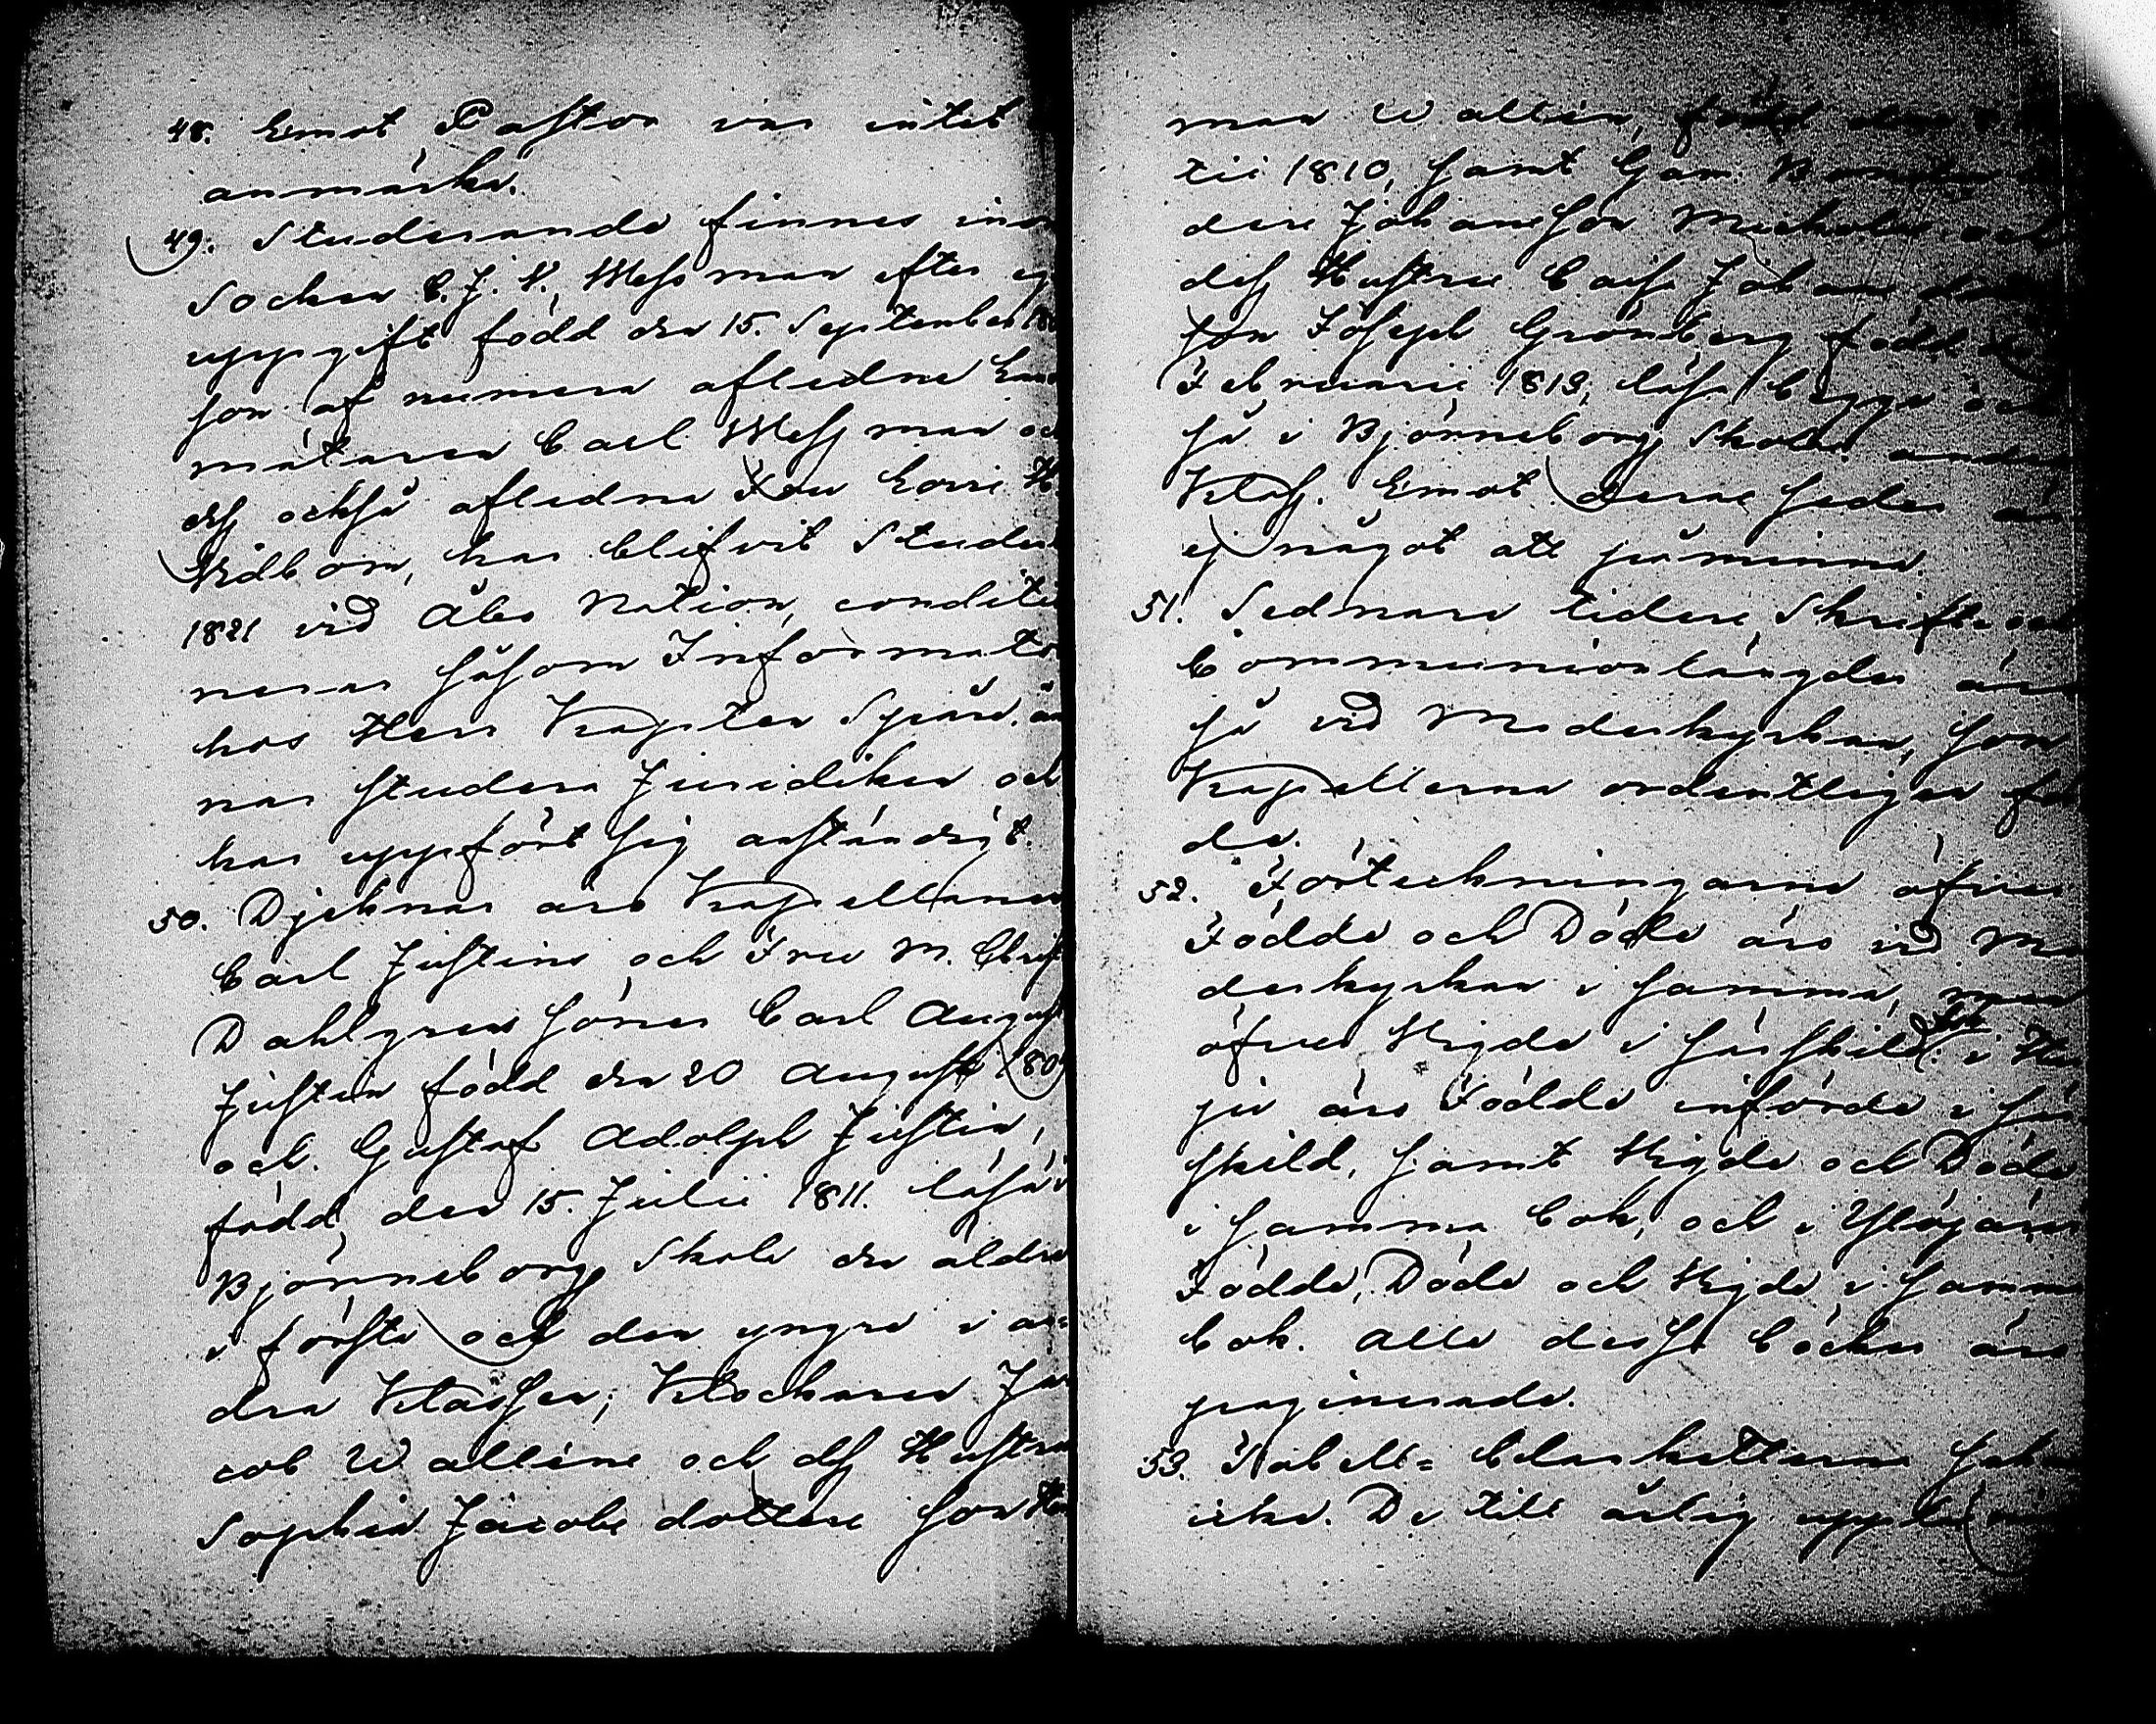 48. Emot Pastor var intet
anmärka.
49. Studerande finnes inom
Socken C. J. N. Messman efter eg
uppgift född den 15. September 180
son af numera afledne Land
mätaren Carl Messman och
dess också afledna Fru Lovi. H.
Vidbom, har blifvit Student
1821 vid Åbo Nation, conditio
nerar såsom Informator
hos Herr Kapiten Spåre, äm
nar studera Juridiken och
har uppfört sig anständigt.
50. Djeknar äro Kapellanen
Carl Justins och Fru M. Christ
Dahlgrens söner Carl August
Justin född den 20 August 180
och Gustaf Adolph Justin,
född den 15. Julii 1811. läsa i
Björneborgs Skola den äldre
i första och den yngre i an=
dra Klassen; Klockaren Ja
cob Wallins och dess Hustru
Sophia Jacobs dotters son Her
man Wallin, född den
tii 1810, samt Gam. Bonden
dere Johansson Mickola och
dess Hustrus Caisa Johans dotter
son Joseph Grönberg född d
Februarii 1813, läsa begge ock
så i Björneborgs Skola andra
Klass. Emot deras seder är
ej något att påminna.
51. Sednare tiders Skrift= och
Communionlängder äro
så vid Moderkyrkan, som
Kapellerna ordentligen för
da.
52. Förteckningarne öfver
Födde och Döde äro vid Mo
derkyrkan i samma, men
öfver Vigde i särskild bok i
ju äro Födde införde i sär
skild, samt Vigde och Döde
i samma bok, och i Ylöjärvi
Födde, Döde och Vigde i samma
bok. Alla dessa böcker äro
paginerade.
53. Tabell= blanketterna saknas
icke. De till årlig uppläs